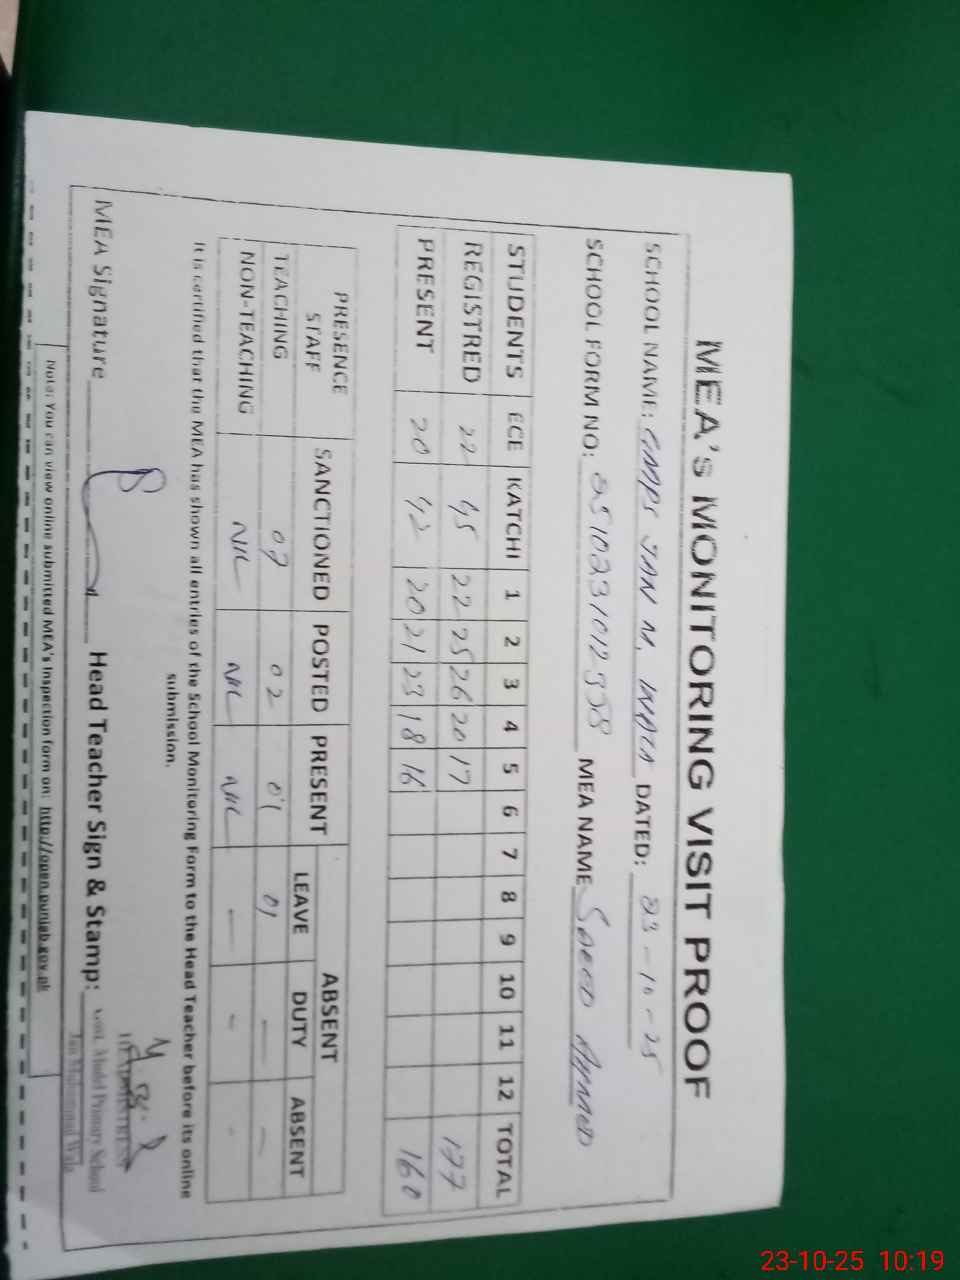 MEA's MONITORING VISIT PROOF
SCHOOL NAME: GMPS JAN M. WALA DATED: 23-10-25
SCHOOL FORM NO: MEA NAME Saeed Ahmed
STUDENTS ECE KATCHI 1 2 3 4 5 6 7 8 9 10 11 12 TOTAL
REGISTRED 22 45 22 25 26 20 17 177
PRESENT 20 42 20 21 23 18 16 160
PRESENCE STAFF SANCTIONED POSTED PRESENT ABSENT
LEAVE DUTY ABSENT
TEACHING 02 01 01 — —
NON-TEACHING NIL NIL NIL — - -
It is certified that the MEA has shown all entries of the School Monitoring Form to the Head Teacher before its online
submission.
MEA Signature Head Teacher Sign & Stamp:
HEADMISTRESS
Govt. Model Primary School
Jan Muhammad Wala
Note: You can view online submitted MEA's Inspection form on: http://open.punjab.gov.pk
23-10-25 10:19